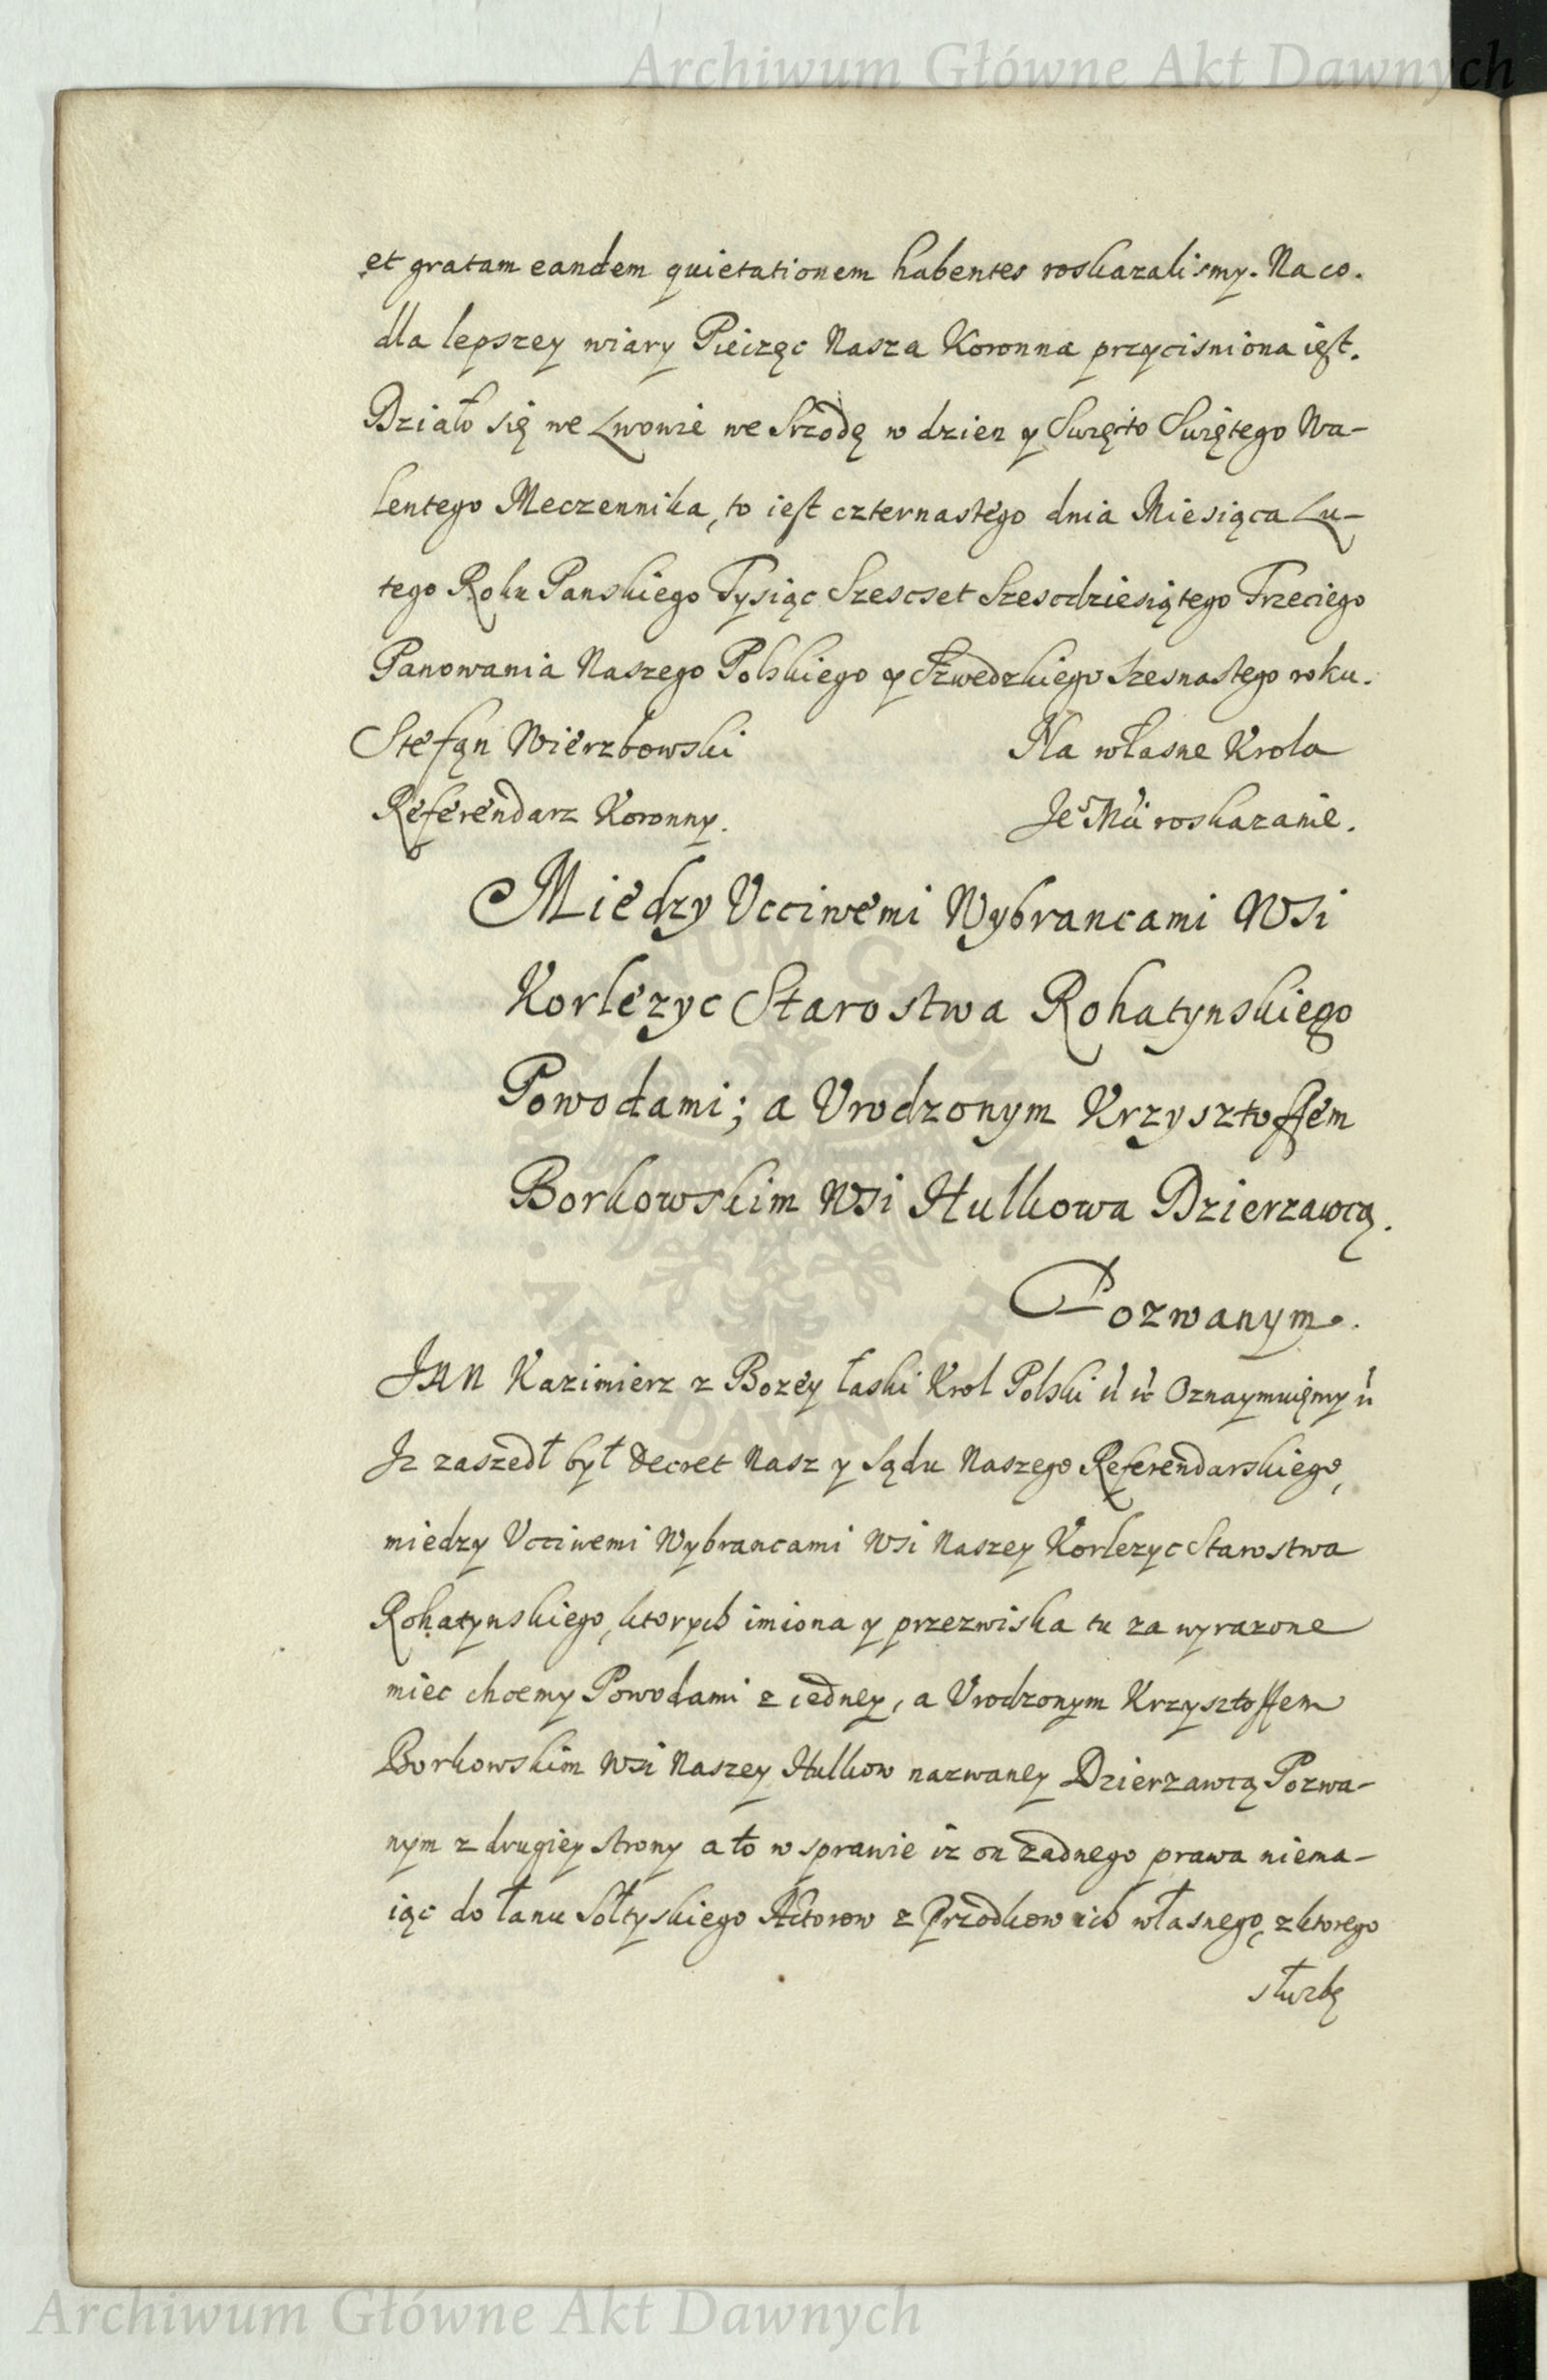 Archiwum Główne Akt Dawnych
et gratam eandem quietationem habentes roskazalismy. Na co.
dla lepszey wiary Pieczęc Nasza Koronna przycisniona iest.
Działo się we Lwowie we Srzodę w dzien y Swięto Swiętego Wa-
lentego Meczennika, to iest czternastego dnia Miesiąca Lu-
tego Roku Panskiego Tysiąc Szescset Szescdziesiątego Trzeciego
Panowania Naszego Polskiego y Szwedzkiego szesnastego roku.
Stefan Wierzbowski Na własne Krola
Referendarz Koronny. Je° Mći roskazanie.
Miedzy Vcciwemi Wybrancami Wsi
Korlezyc Starostwa Rohatynskiego
Powodami; a Vrodzonym Krzysztoffem
Borkowskim Wsi Hulkowa Dzierzawcą.
Pozwanym.
JAN Kazimierz z Bozey łaski Krol Polski ɛ̈ ɛ̈ Oznaymuięmy ɛ̈
Jz zaszedł był Decret Nasz y Sądu Naszego Referendarskiego,
miedzy Vcciwemi Wybrancami Wsi Naszey Korlezyc Starostwa
Rohatynskiego, ktorych imiona y przezwiska tu za wyrazone
miec chcemy Powodami z iedney, a Vrodzonym Krzysztoffem
Borkowskim Wsi Naszey Hulkow nazwaney Dzierzawcą Pozwa-
nym z drugiey strony a to w sprawie iz on zadnego prawa niema-
iąc do łanu Sołtyskiego Actorow z Przodkow ich własnego, z ktorego
słuzbę
Archiwum Główne Akt Dawnych